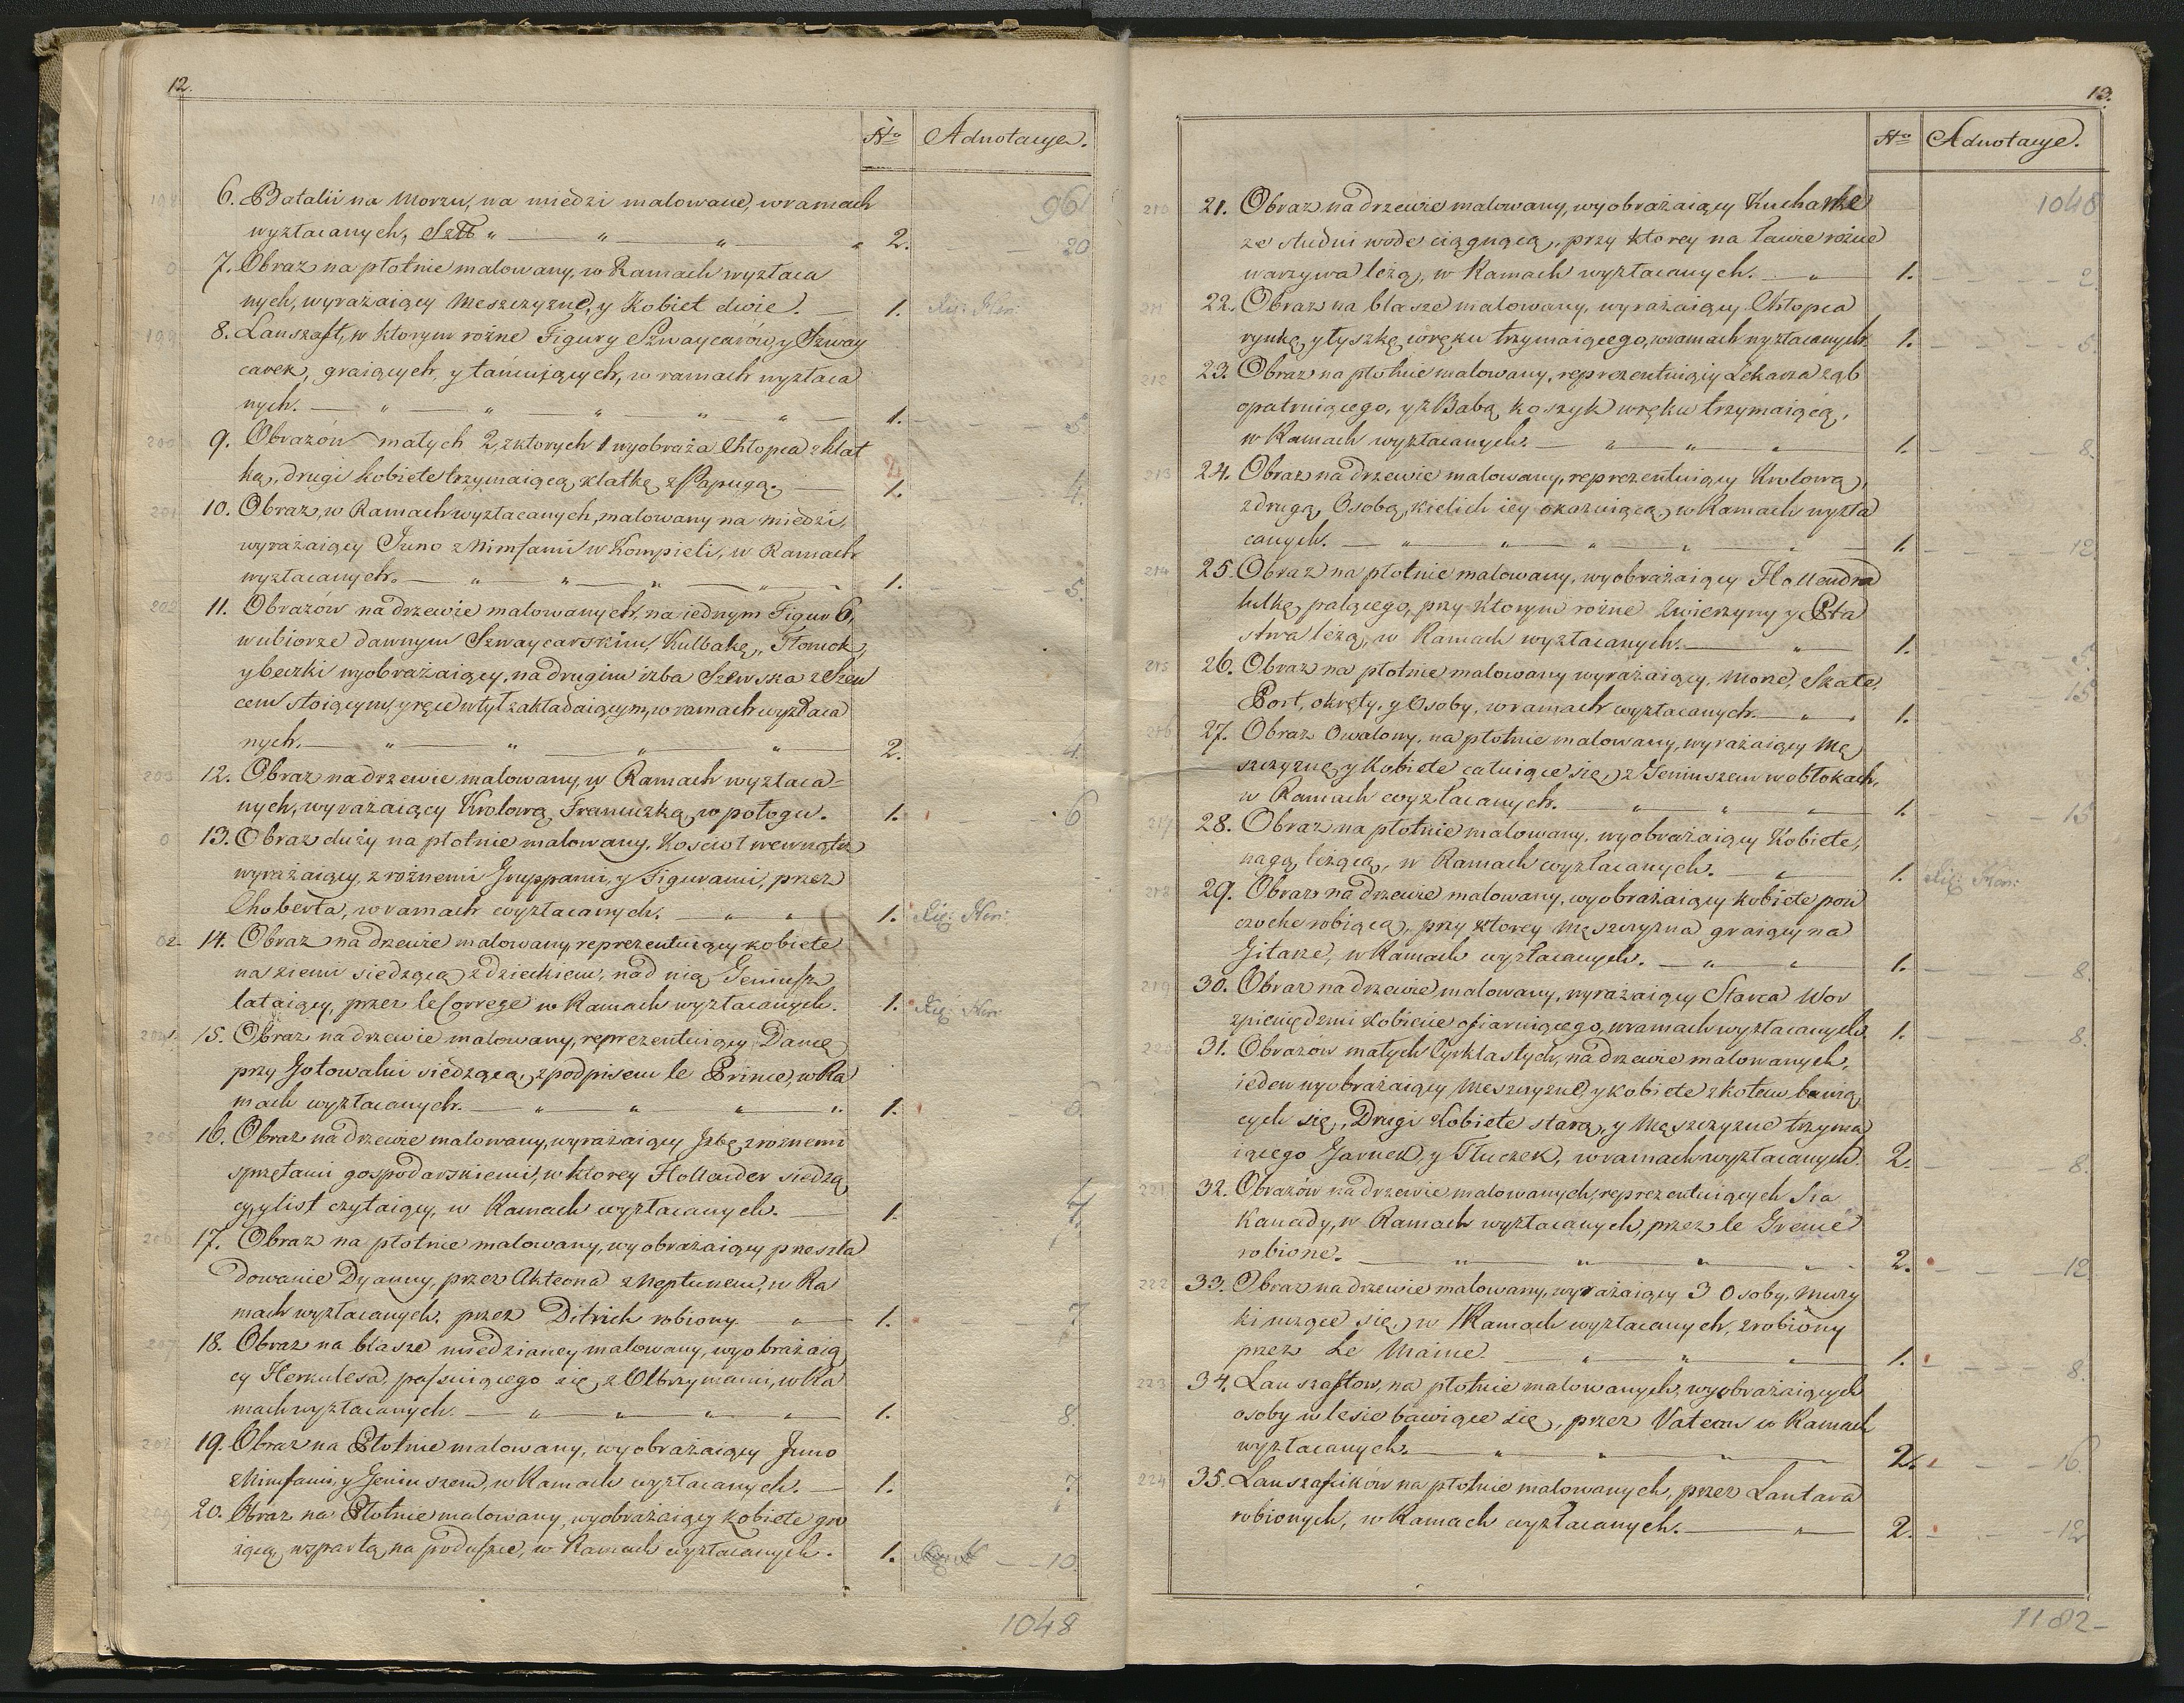 12.
No Adnotacye.
96
198 6. Batalii na Morzu, na miedzi malowane, w ramach
wyzłacanych, Sztt „ — „ — „ — „ 2. — 20
0 7. Obraz na płotnie malowany, w Ramach wyzłaca
nych, wyrażaiący Mesczyznę, y Kobiet dwie. — 1. Xię: Kon:
199 8. Lanszaft, w ktorym rożne Figury Szwaycarów, y Szway
carek, graiących y tańcuiących, w ramach wyzłaca
nych. — „ — „ — „ — „ — „ — 1. — — — 5
200 9. Obrazów małych 2, z ktorych 1 wyobraża Chłopca z klat
ką, drugi kobiete trzymaiącą klatkę z Papugą. — 1. 2 — — 4.
201 10. Obraz, w Ramach wyzłacanych, malowany na miedzi,
wyrażaiący Juno z Nimfami w Kompieli, w Ramach
wyzłacanych. — „ — „ — „ — „ 1. — — — 5.
202 11. Obrazów na drzewie malowanych, na iednym Figur 6,
w ubiorze dawnym Szwaycarskim, Kulbakę, Tłomok,
y beczki wyobrażaiący, na drugim izba Szewska z Szew
cem stoiącym, y ręce w tył zakładaiącym, w ramach wyzłaca
nych. — „ — „ — „ — „ — 2. 4.
203 12. Obraz na drzewie malowany, w Ramach wyzłaca=
nych, wyrażaiący Krolową Francuzką, w połogu. 1. 6
0 13. Obraz duży na płotnie malowany, Koscioł wewnątrz
wyrażaiący, z rożnemi Gruppami, y Figurami, przez
Choberta, w ramach wyzłacanych. — „ — „ — 1. Xię: Kon:
02. 14. Obraz na drzewie malowany, reprezentuiący kobiete
na ziemi siedzącą z dzieckiem, nad nią Geniusz
lataiący, przez le Correge w Ramach wyzłacanych. 1. Xię: Kon:
204. 15. Obraz na drzewie malowany, reprezentuiący Damę
przy Gotowalni siedzącą, z podpisem le Prince, w Ra
mach wyzłacanych. — „ — „ — „ — „ 1. 6.
205 16. Obraz na drzewie malowany, wyrażaiący Izbę z rożnemi
sprzętami gospodarskiemi, w ktorey Hollender siedzą
cy, y list czytaiący, w Ramach wyzłacanych. — 1. 4.
206 17. Obraz na płotnie malowany, wyobrażaiący przeszła
dowanie Dyanny, przez Akteona z Neptunem, w Ra
mach wyzłacanych, przez Ditrich robiony. — „ — 1. — 7
207 18. Obraz na blasze miedzianey malowany, wyobrażaią
cy Herkulesa, passuiącego się z Olbrzymami, w Ra
mach wyzłacanych. — „ — „ — „ — „ — 1. 8.
208 19. Obraz na Płotnie malowany, wyobrażaiący Juno
z Nimfami, y Geniuszem, w Ramach wyzłacanych. — 1. 7
209 20. Obraz na Płotnie malowany, wyobrażaiący kobiete gro
żącą, wspartą na poduszce, w Ramach wyzłacanych. 1. — — 10.
1048
13.
No Adnotacye.
1048
210 21. Obraz na drzewie malowany, wyobrażaiący Kucharkę
ze studni wode ciągnącą, przy ktorey na ławie rożne
warzywa leżą, w Ramach wyzłacanych. — „ — 1. — — — 2.
211 22. Obraz na blasze malowany, wyrażaiący Chłopca
rynkę, y łyszkę w ręku trzymaiącego, w ramach wyzłacanych. 1. — — — 5.
212 23. Obraz na płotnie malowany, reprezentuiący Lekarza ząb
opatruiącego, y z Babą koszyk w ręku trzymaiącą,
w Ramach wyzłacanych. — „ — „ — „ — 1. — — — 8.
213 24. Obraz na drzewie malowany, reprezentuiący Krolową,
z drugą Osobą, kielich iey okazuiącą, w Ramach wyzła
canych. — „ — „ — „ — „ — „ — 1. — — — 12.
214 25. Obraz na płotnie malowany, wyobrażaiący Hollendra
lulkę palącego, przy ktorym rożne Zwierzyny y Pta
stwa leżą, w Ramach wyzłacanych. — „ — 1. — 5.
215 26. Obraz na płotnie malowany wyrażaiący, Morze, Skałe,
Port, okręty, y Osoby, w ramach wyzłacanych. — „ 1. — 15
216 27. Obraz Owalony, na płotnie malowany, wyrażaiący Mę
szczyznę, y Kobiete całuiące się, z Geniuszem w obłokach,
w Ramach wyzłacanych. — „ — „ — „ — 1. — 15
217 28. Obraz na płotnie malowany, wyobrażaiący Kobiete,
nagą leżącą, w Ramach wyzłacanych. — „ — 1. Xię: Kon:
218 29. Obraz na drzewie malowany, wyobrażaiący kobiete poń
czoche robiącą, przy ktorey Męszczyzna graiący na
Gitarze, w Ramach wyzłacanych. — „ — „ — 1. — 8.
219 30. Obraz na drzewie malowany, wyrażaiący Starca Wor
z pieniędzmi Kobiecie ofiaruiącego, w ramach wyzłacanych. 1. — 8.
220 31. Obrazów małych Cyrklastych, na drzewie malowanych,
ieden wyobrażaiący Meszczyznę, y kobiete z kotem bawią
cych się, Drugi Kobiete starą, y Męszczyznę trzyma
iącego Garnek, y Tłuczek, w ramach wyzłacanych. 2. — 8.
221 32. Obrazów na drzewie malowanych, reprezentuiących Sza
Kanady, w Ramach wyzłacanych, przez le Greme
robione. — „ — „ — „ — „ — 2. — 12.
222 33. Obraz na drzewie malowany, wyrażaiący 3 Osoby, Muzy
ki uczące się, w Ramach wyzłacanych, zrobiony
przez Le Maine. — „ — „ — „ — 1. — 8.
223 34. Lanszaftow, na płotnie malowanych, wyobrażaiących
osoby w lesie bawiące się, przez Vateau w Ramach
wyzłacanych. — „ — „ — „ — 2. — 16.
224 35. Lanszafcików na płotnie malowanych, przez Lantara
robionych, w Ramach wyzłacanych. — „ — 2. — 12
1182–